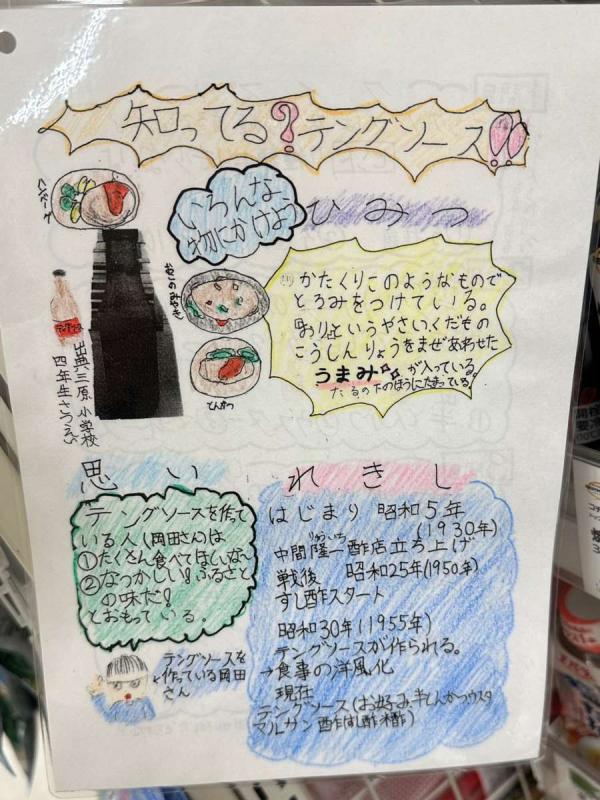 知ってる?テングソース!!
ハンバーグ
いろんな
物にかけよう
ひみつ
おこのみやき
とんかつ
テングソース
出典三原小学校
四年生さつえい
かたくりこのようなもので
とろみをつけている。
「おり」というやさい、くだもの
こうしんりょうをまぜあわせた
うまみが入っている。
たるの下のほうにたまっている。
思い
テングソースを作って
いる人(岡田さん)は
①たくさん食べてほしいな~
②なつかしい!ふるさと
の味だ!
とおもっている。
テングソースを
作っている岡田
さん
れきし
はじまり 昭和5年
(1930年)
中間隆一酢店立ち上げ
りゅういち
戦後 昭和25年(1950年)
すし酢スタート
昭和30年(1955年)
テングソースが作られる。
→食事の洋風化
現在
テングソース(お好み、とんかつ、ウスタ
マルサン酢